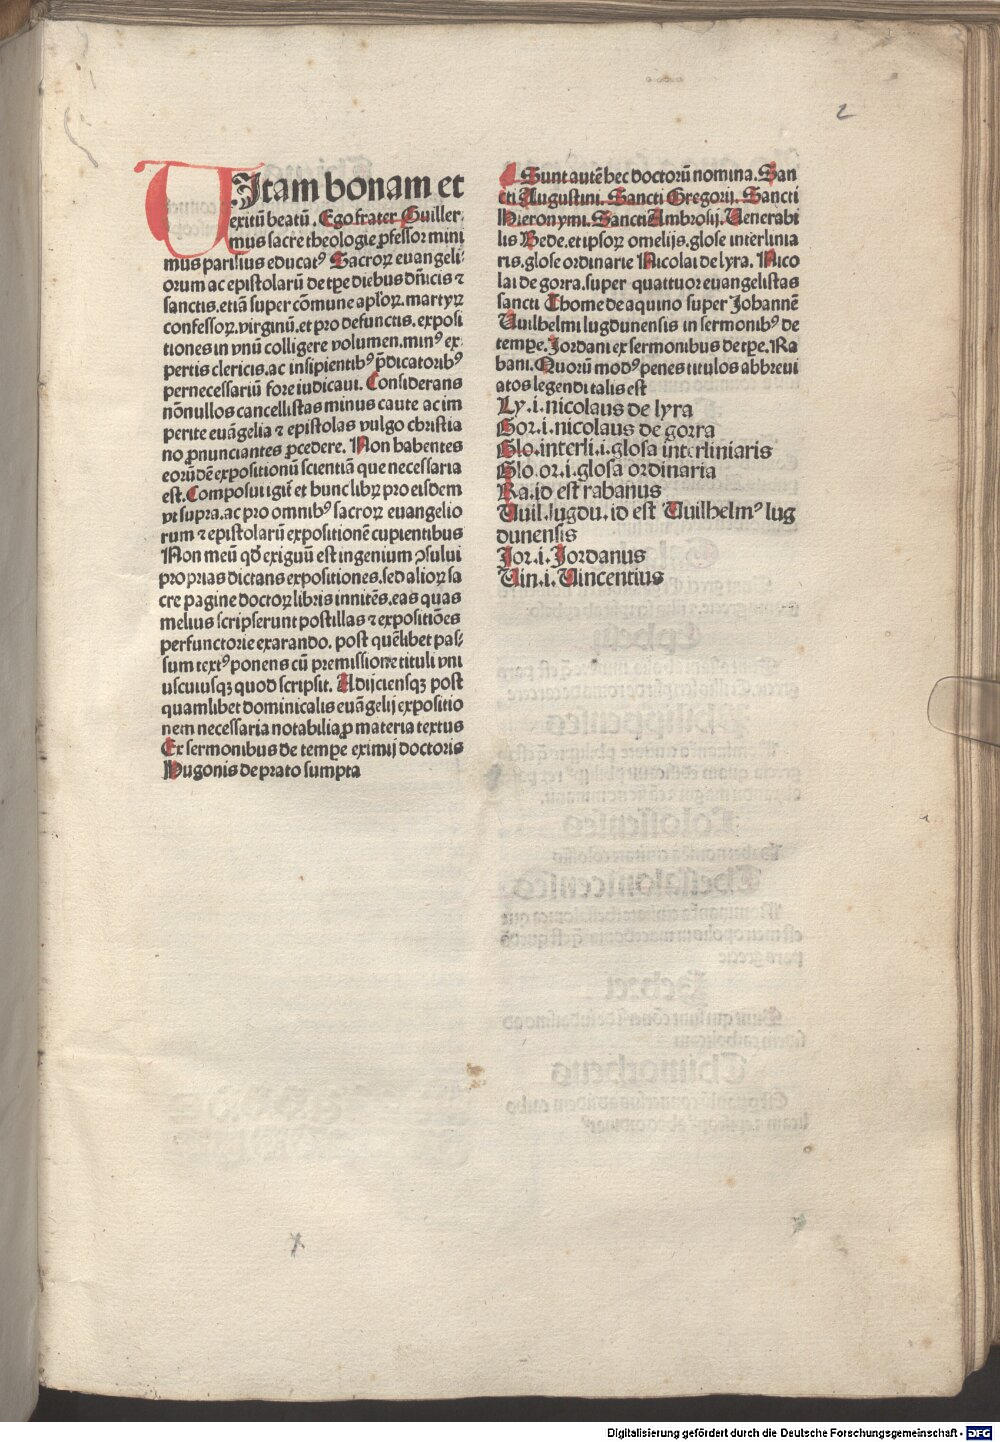 2
VItam bonam et
exitū beatū. Ego frater Guiller-
mus sacre theologie ꝓfessor mini
mus parisius educatꝰ Sacroꝝ euangeli-
orum ac epistolarū de tꝑe diebus dn̄icis ⁊
sanctis. etiā super cōmune apl'oꝝ. martyꝝ
confessoꝝ. virginū. et pro defunctis. exposi
tiones in vnū colligere volumen. minꝰ ex-
pertis clericis. ac insipientibꝰ p̄dicatoribꝰ
pernecessariū fore iudicaui. Considerans
nōnullos cancellistas minus caute ac im
perite euāgelia ⁊ epistolas vulgo christia
no ꝓnunciantes ꝓcedere. Non habentes
eorūdē expositionū scientiā que necessaria
est. Composui igit̄ et hunc libꝝ pro eisdem
vt supra. ac pro omnibꝰ sacroꝝ euangelio
rum ⁊ epistolarū expositionē cupientibus
Non meū qď exiguū est ingenium ꝯsului
proprias dictans expositiones. sed alioꝝ sa
cre pagine doctoꝝ libris innitēs. eas quas
melius scripserunt postillas ⁊ expositiōes
perfunctorie exarando. post quēlibet pas-
sum textꝰ ponens cū premissione tituli vni
uscuiusqꝫ quod scripsit. Adijciensqꝫ post
quamlibet dominicalis euāgelij expositio
nem necessaria notabilia ꝓ materia textus
Ex sermonibus de tempe eximij doctoris
Hugonis de prato sumpta
Sunt autē hec doctorū nomina. San
cti Augustini. Sancti Gregorij. Sancti
Hieronymi. Sancti Ambrosij. Venerabi
lis Bede. et ipsoꝝ omelijs. glose interlinia
ris. glose ordinarie Nicolai de lyra. Nico
lai de gorra. super quattuor euangelistas
sancti Thome de aquino super Johannē
Wilhelmi lugdunensis in sermonibꝰ de
tempe. Jordani ex sermonibus de tꝑe. Ra
bani. Quorū modꝰ penes titulos abbreui
atos legendi talis est
Ly. .i. nicolaus de lyra
Gor. .i. nicolaus de gorra
Glo. interli. .i. glosa interliniaris
Glo. or. .i. glosa ordinaria
Ra. id est rabanus
Wil. lugdu. id est Wilhelmꝰ lug
dunensis
Jor. .i. Jordanus
Vin. .i. Vincentius
Digitalisierung gefördert durch die Deutsche Forschungsgemeinschaft - DFG